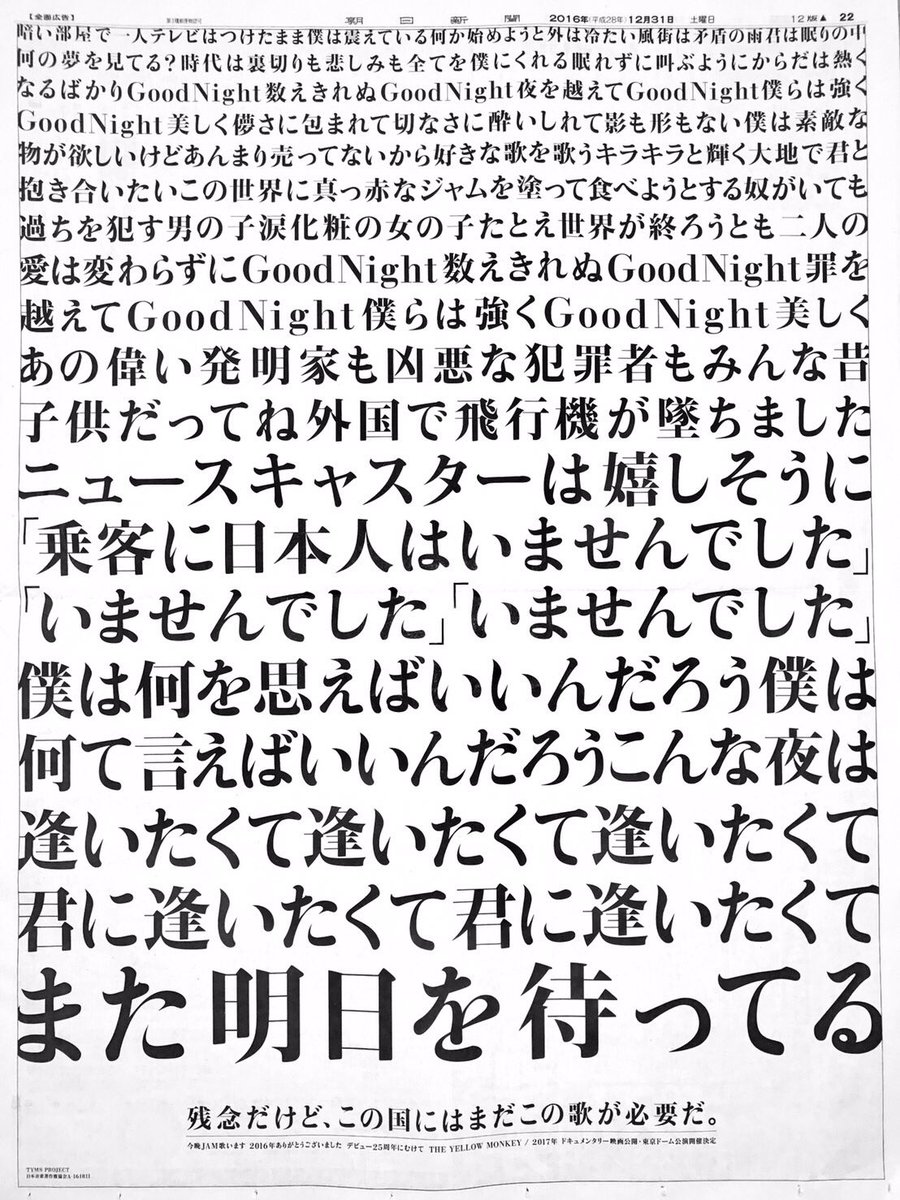 【全面広告】 第3種郵便物認可 朝日新聞 2016年(平成28年)12月31日 土曜日 12版▲ 22
暗い部屋で一人テレビはつけたまま僕は震えている何か始めようと外は冷たい風街は矛盾の雨君は眠りの中
何の夢を見てる?時代は裏切りも悲しみも全てを僕にくれる眠れずに叫ぶようにからだは熱く
なるばかりGoodNight数えきれぬGoodNight夜を越えてGoodNight僕らは強く
GoodNight美しく儚さに包まれて切なさに酔いしれて影も形もない僕は素敵な
物が欲しいけどあんまり売ってないから好きな歌を歌うキラキラと輝く大地で君と
抱き合いたいこの世界に真っ赤なジャムを塗って食べようとする奴がいても
過ちを犯す男の子涙化粧の女の子たとえ世界が終ろうとも二人の
愛は変わらずにGoodNight数えきれぬGoodNight罪を
越えてGoodNight僕らは強くGoodNight美しく
あの偉い発明家も凶悪な犯罪者もみんな昔
子供だってね外国で飛行機が墜ちました
ニュースキャスターは嬉しそうに
「乗客に日本人はいませんでした」
「いませんでした」「いませんでした」
僕は何を思えばいいんだろう僕は
何て言えばいいんだろうこんな夜は
逢いたくて逢いたくて逢いたくて
君に逢いたくて君に逢いたくて
また明日を待ってる
残念だけど、この国にはまだこの歌が必要だ。
今晩JAM歌います 2016年ありがとうございました デビュー25周年にむけて THE YELLOW MONKEY / 2017年 ドキュメンタリー映画公開・東京ドーム公演開催決定
TYMS PROJECT
日本音楽著作権協会A-1648H